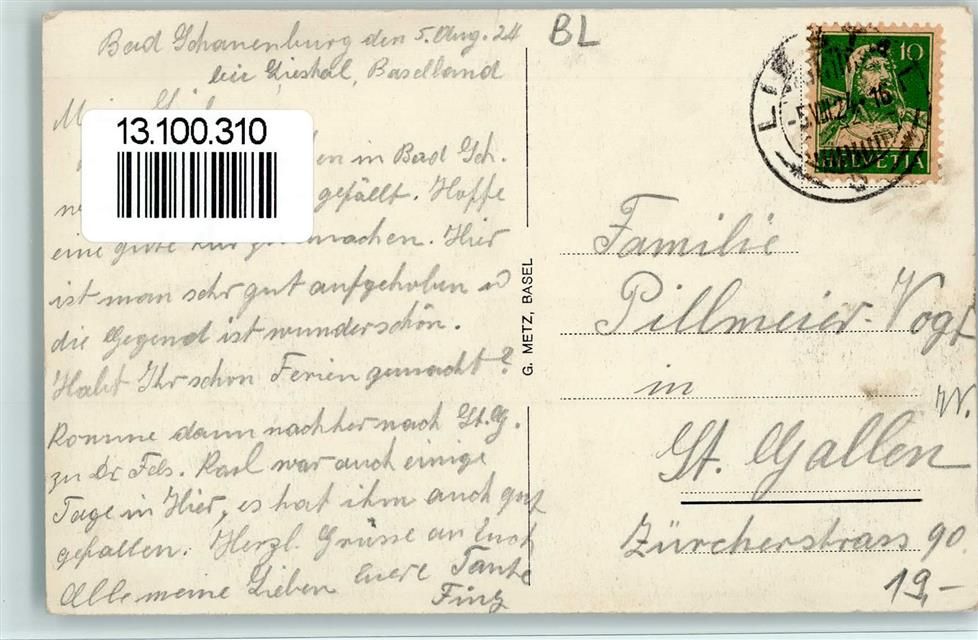 Bad Schauenburg den 5. Aug. 24
bei Liestal, Baselland
BL
13.100.310
en in Bad Sch.
gefällt. Hoffe
eine gute Kur machen. Hier
ist man sehr gut aufgehoben u
die Gegend ist wunderschön.
Habt Ihr schon Ferien gemacht?
Komme dann nachher nach St. G.
zu Dr Fels. Karl war auch einige
Tage in Hier, es hat ihm auch gut
gefallen. Herzl. Grüsse an Euch
Alle meine Lieben Euere Tante
Finy
G. METZ, BASEL
10
HELVETIA
LIESTAL
Familie
Pillmeier-Vogt
in
W.
St. Gallen
Zürcherstrass 90.
19,-